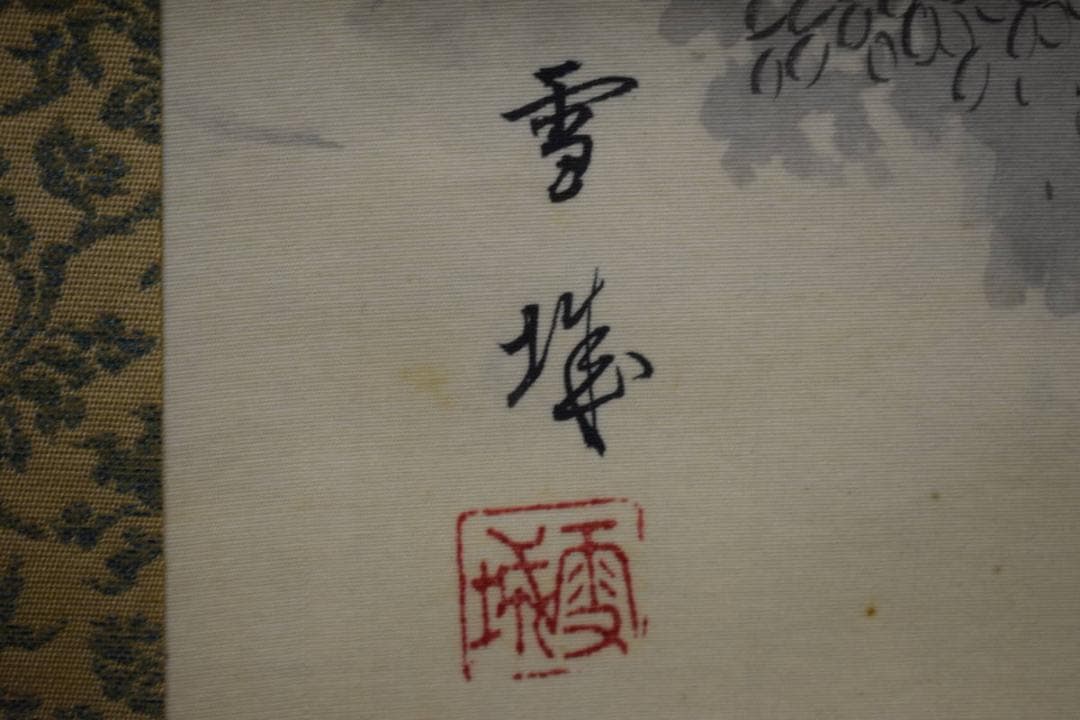 雪城
雪城